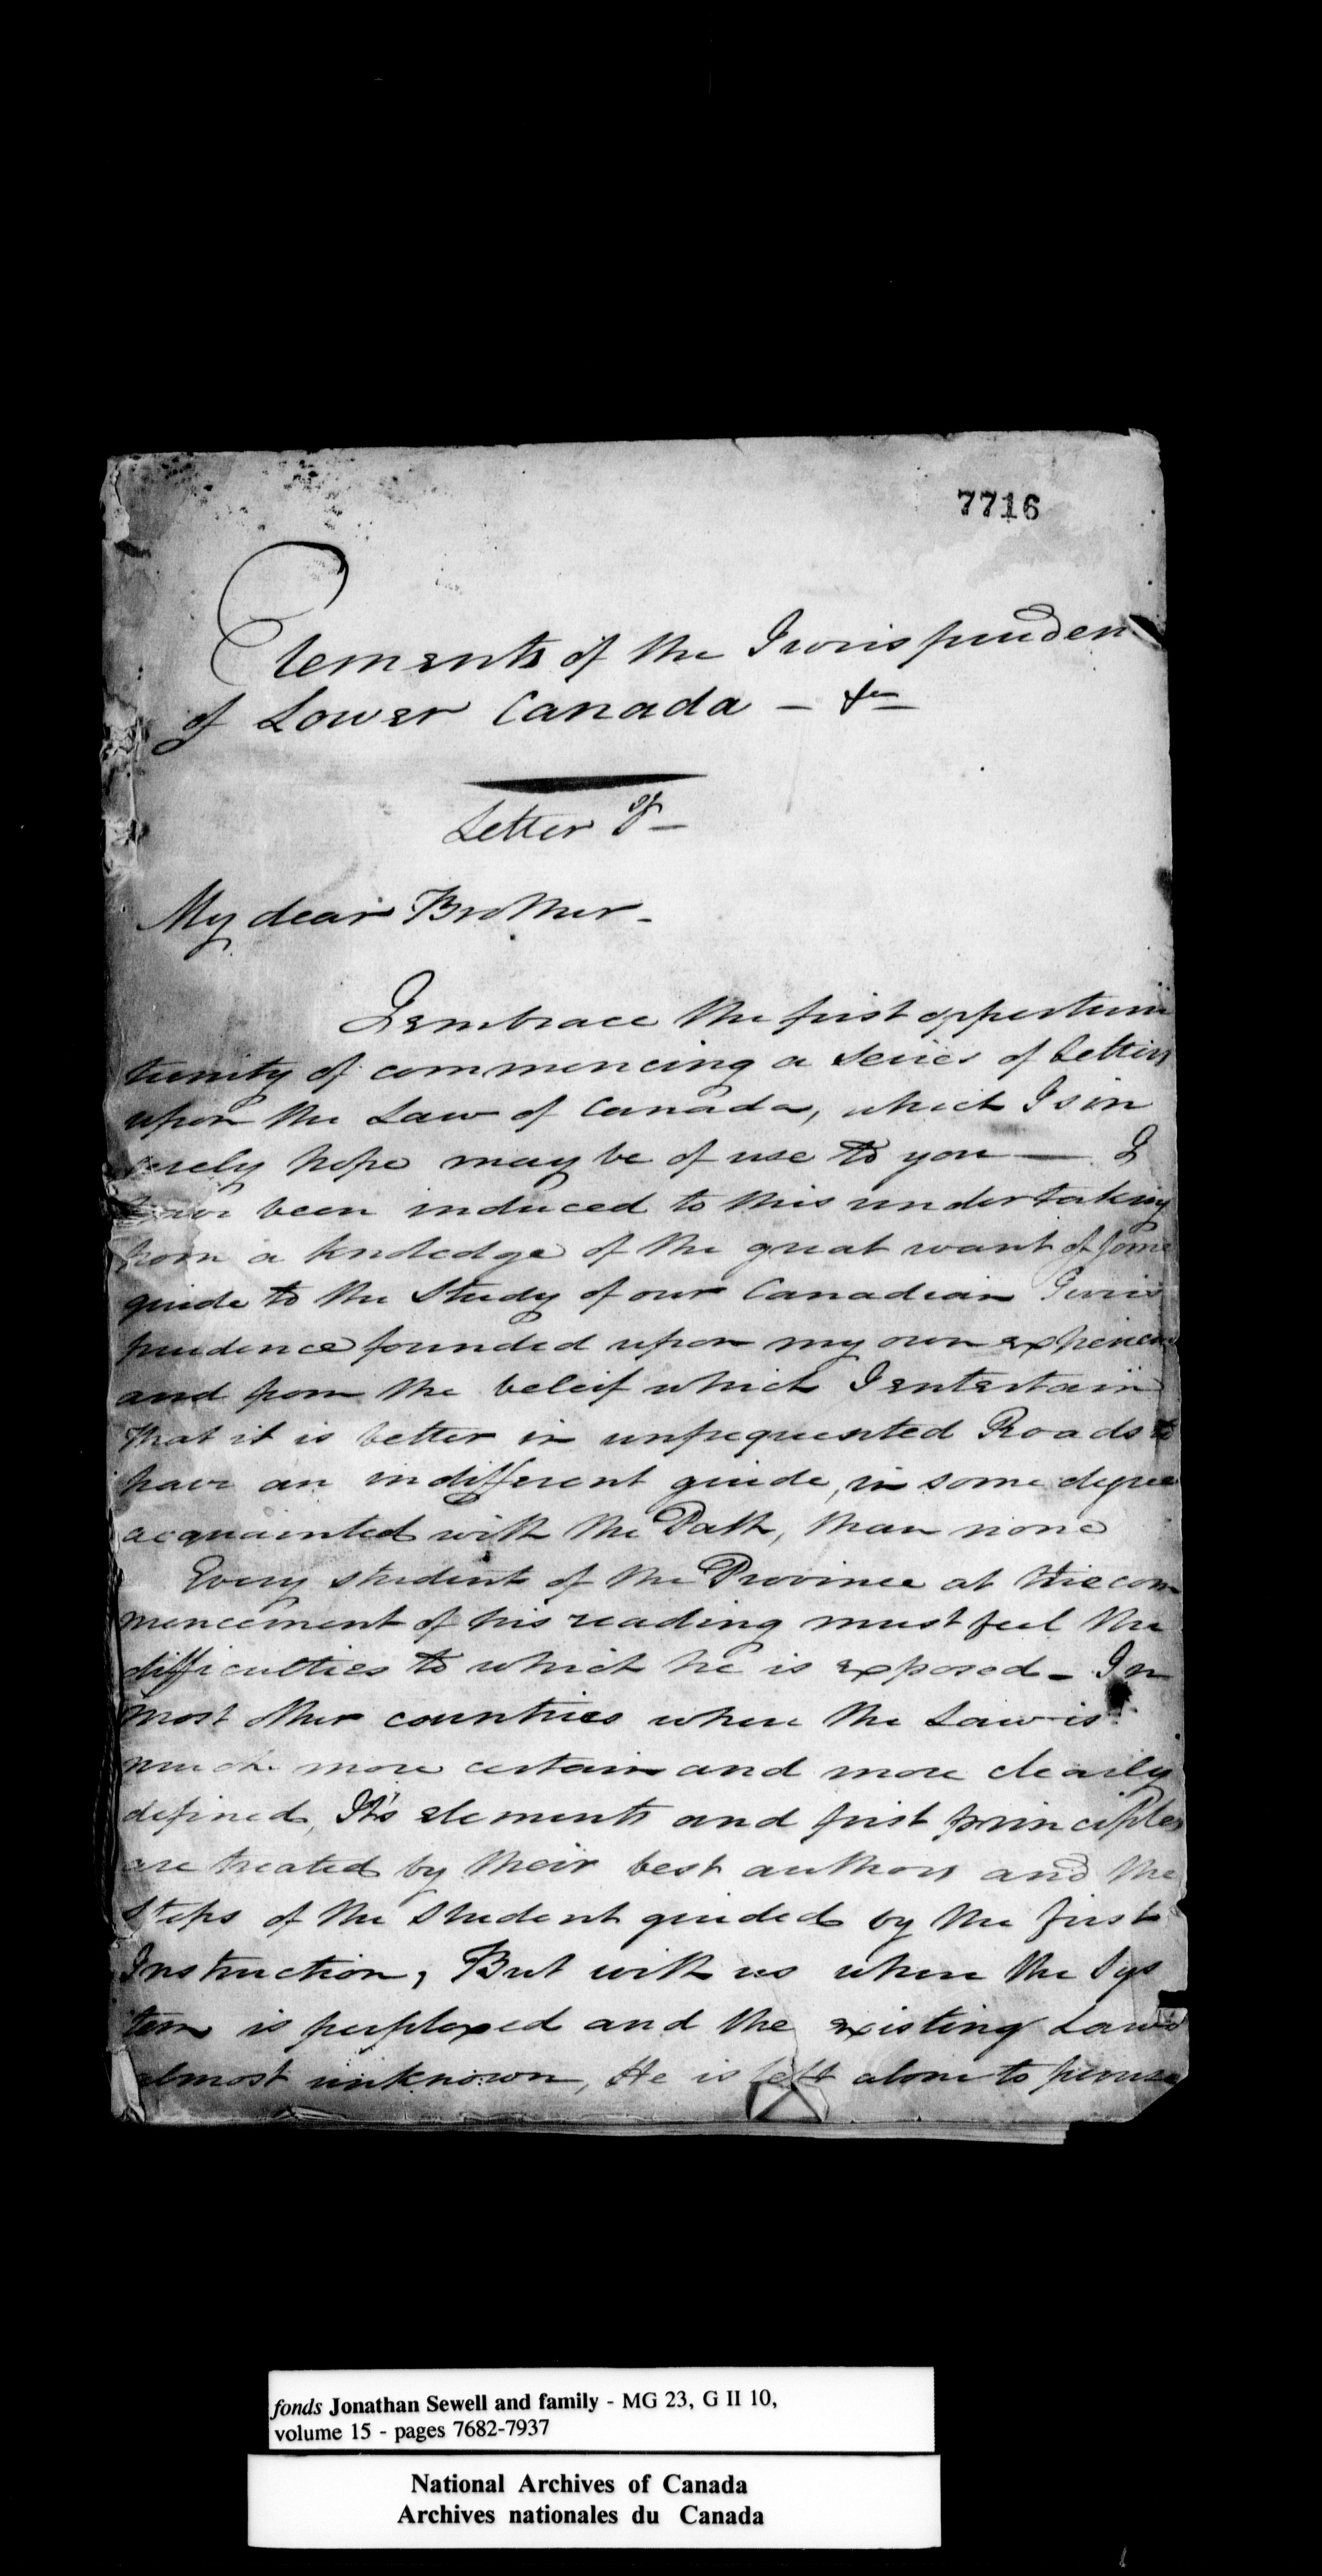 7716
Elements of the Jurispruden
of Lower Canada - &c
Letter 1st
My dear Brother -
I embrace the first opportuni
tunity of commencing a Series of Letters
upon the Law of Canada, which I sin
cerely hope may be of use to you — I
have been induced to this undertaking
from a knoledge of the great want of some
guide to the Study of our Canadian Juris
prudence founded upon my own experience
and from the beleif which I entertain
that it is better in unfrequented Roads to
have an indifferent guide, in some degree
acquainted with the Path, than none
Every student of the Province at the com
mencement of his reading must feel the
difficulties to which he is exposed - In
most other countries where the Law is
much more certain and more clearly
defined, It's elements and first principles
are treated by their best authors and the
steps of the Student guided by the first
Instruction, But with us where the Sys
tem is perplexed and the existing Laws
almost unknown, He is left alone to peruse
fonds Jonathan Sewell and family - MG 23, G II 10,
volume 15 - pages 7682-7937
National Archives of Canada
Archives nationales du Canada